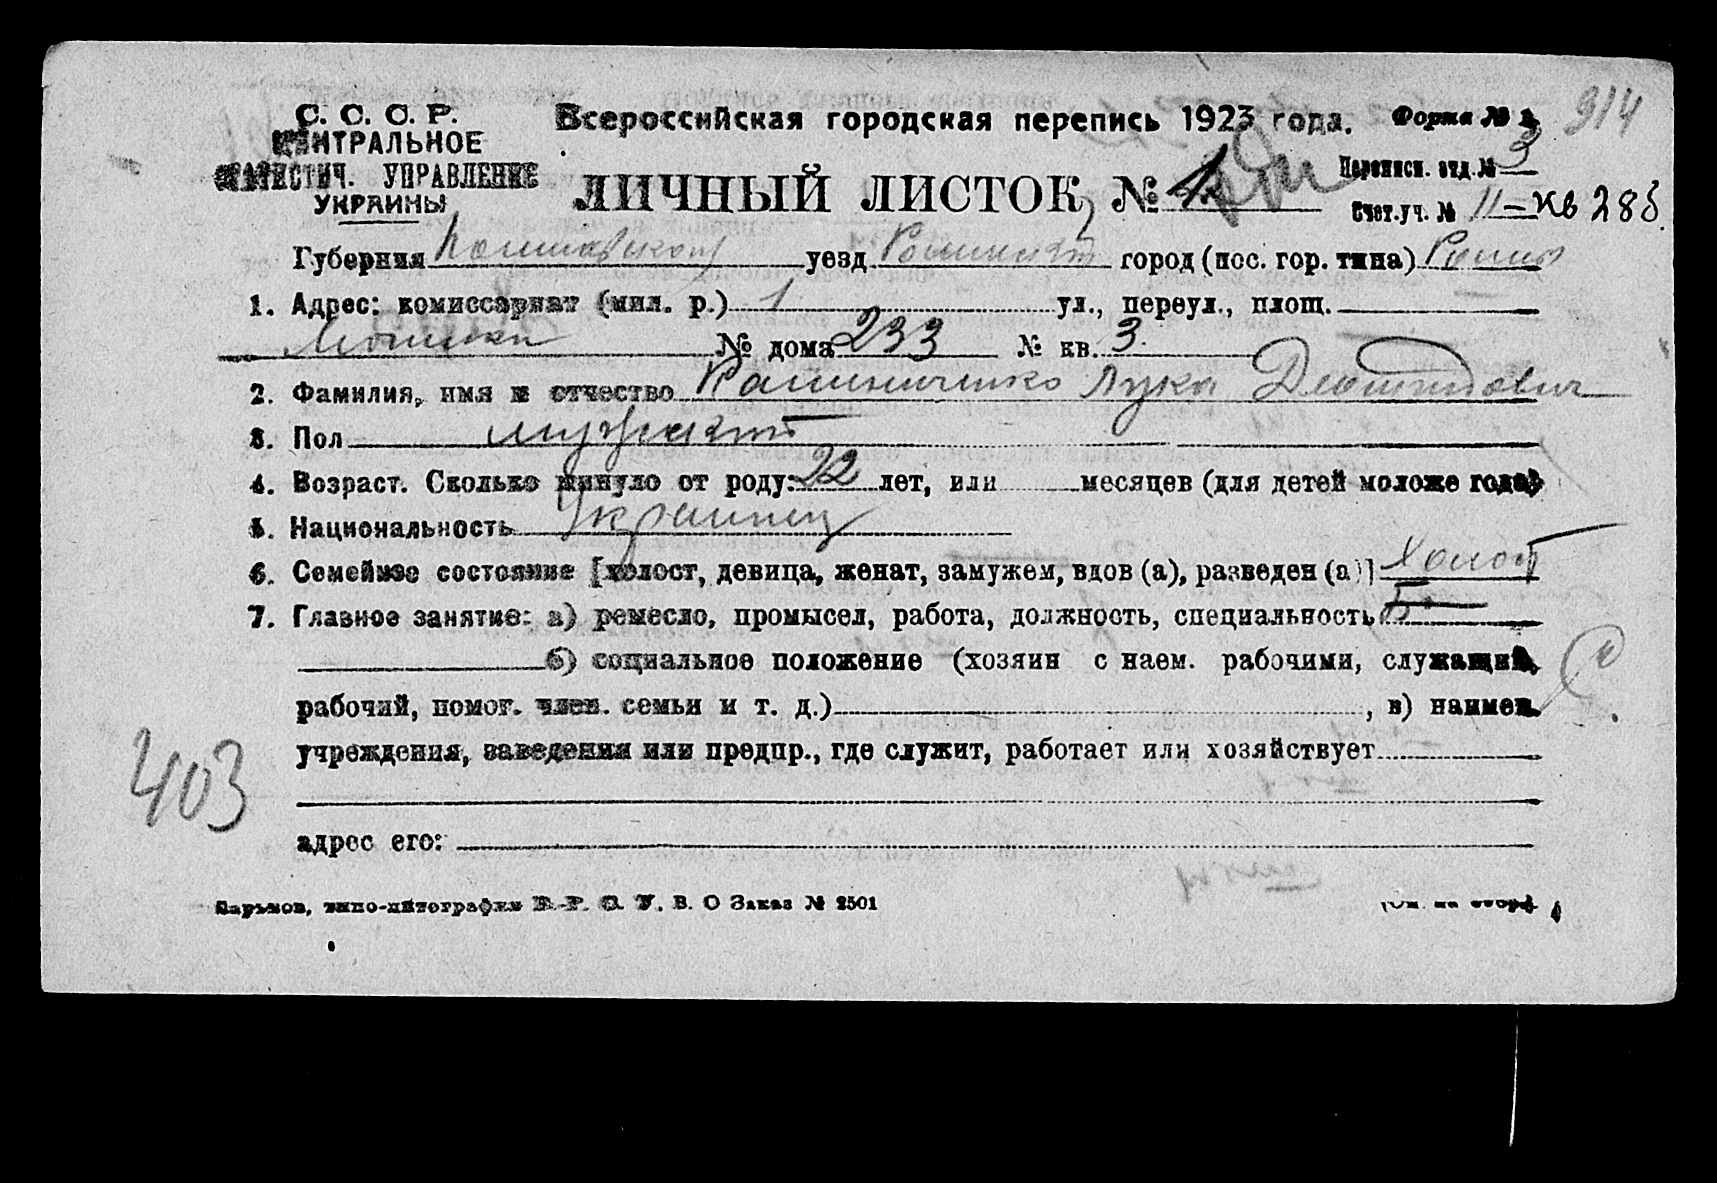 С. С. С. Р.
ЦЕНТРАЛЬНОЕ
СТАТИСТИЧ. УПРАВЛЕНИЕ
УКРАИНЫ
Всероссийская городская перепись 1923 года.
Форма № 914
ЛИЧНЫЙ ЛИСТОК № 1
Переписн. отд. № 3
Счет. уч. № 11 – кв 285
Губерния Полтавская уезд Роменский город (пос. гор. типа) Ромны
1. Адрес: комиссариат (мил. р.) 1 ул., переул., площ.
№ дома 233 № кв. 3
2. Фамилия, имя и отчество Лука
3. Пол мужской
4. Возраст. Сколько минуло от роду: 22 лет, или месяцев (для детей моложе года)
5. Национальность Украинец
6. Семейное состояние [холост, девица, женат, замужем, вдов (а), разведен (а)] Холост
7. Главное занятие: а) ремесло, промысел, работа, должность, специальность
б) социальное положение (хозяин с наем. рабочими, служащий,
рабочий, помог. член. семьи и т. д.) , в) наимен.
учреждения, заведения или предпр., где служит, работает или хозяйствует
403
адрес его:
Харьков, типо-литография В. О Заказ № 2501
(См. на обор.)